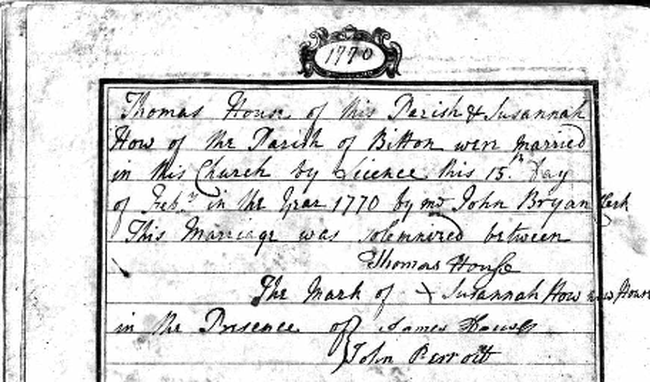 1770
Thomas House of this Parish & Susannah
How of the Parish of Bitton were married
in this Church by Licence this 15th Day
of Feb.ry in the Year 1770 by me John Bryan Clerk
This Marriage was solemnized between
Thomas House
The Mark of + Susannah How now House
in the Presence of James House
John Perrott